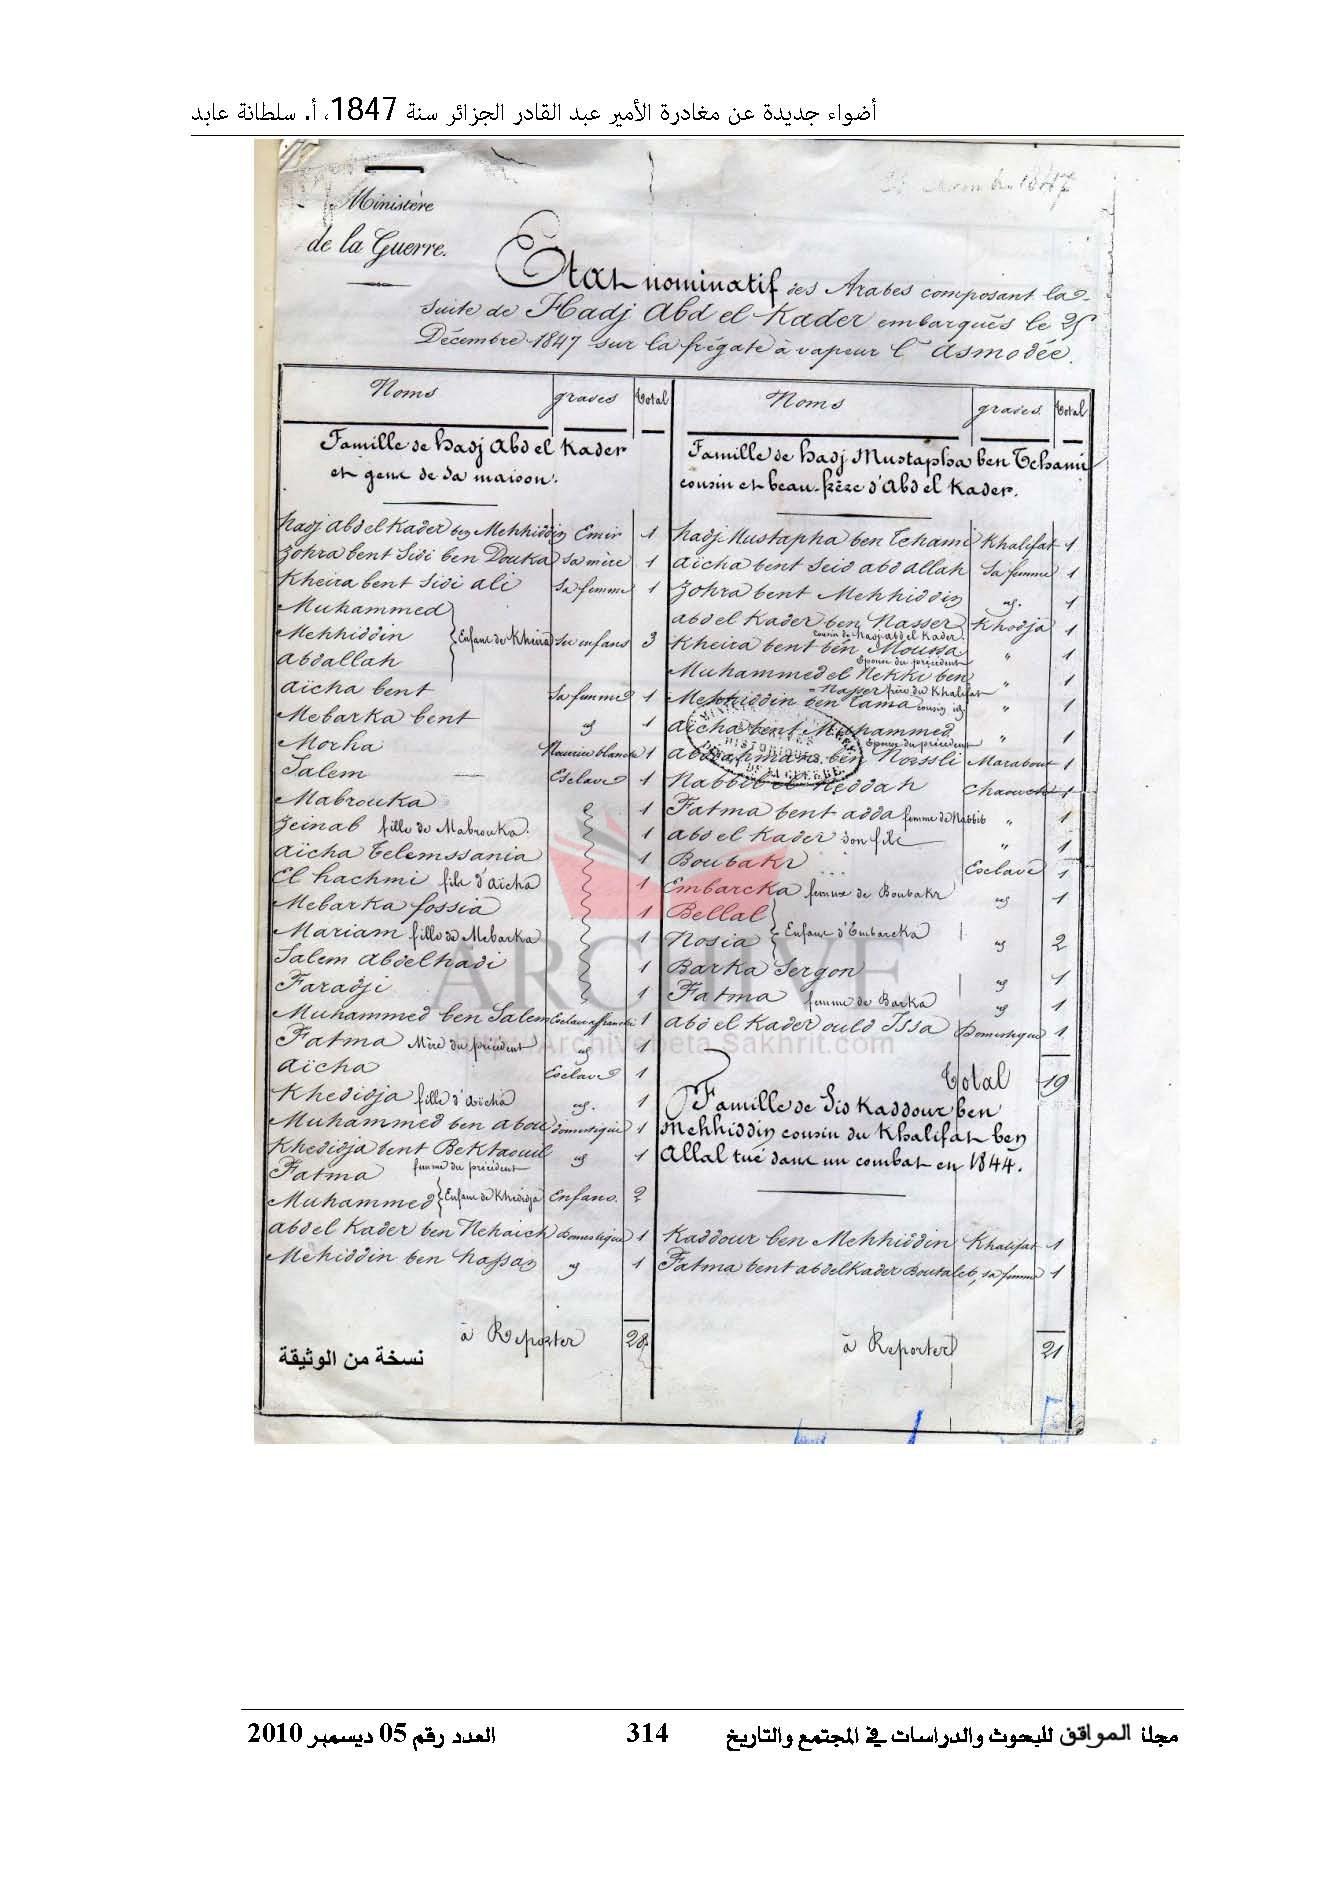 أضواء جديدة عن مغادرة الأمير عبد القادر الجزائر سنة 1847، أ. سلطانة عابد
1847
Ministère
de la Guerre.
Etat nominatif des Arabes composant la
suite de Hadj Abd el Kader embarqués le 25
Décembre 1847 sur la frégate à vapeur l'Asmodée.
Noms grades Total
Famille de hadj Abd el Kader
et gens de sa maison.
hadj abd el Kader ben Mehhiddin Emir 1
Zohra bent Sidi ben Douka sa mère 1
Kheira bent sidi ali sa femme 1
Muhammed
Mehhiddin Enfans de Kheira ses enfans 3
abdallah
aïcha bent sa femme 1
Mebarka bent id 1
Morha Nourrice blanche 1
Salem Esclave 1
Mabrouka 1
Zeinab fille de Mabrouka. 1
aïcha Telemssania 1
El hachmi fils d'aïcha 1
Mebarka fossia 1
Mariam fille de Mebarka 1
Salem abdelhadi 1
Faradji 1
Muhammed ben Salem Esclave affranchi 1
Fatma Mère du précédent id 1
aïcha Esclave 1
Khedidja fille d'aïcha id. 1
Muhammed ben abou domestique 1
Khedidja bent Bektaouil id 1
femme du précédent
Fatma
Muhammed Enfans de Khedidja Enfans. 2
abdel Kader ben Nehaich Domestique 1
Mehiddin ben hassan id 1
à Reporter 28
نسخة من الوثيقة
Noms grades. Total
Famille de hadj Mustapha ben Tehami
cousin et beau-frère d'Abd el Kader.
hadj Mustapha ben Tehami Khalifat 1
aïcha bent Seid abdallah sa femme 1
Zohra bent Mehhiddin id. 1
abd el Kader ben Nasser Khodja 1
cousin de hadj abd el Kader.
Kheira bent ben Moussa " 1
Epouse du précédent
Muhammed el Mekki ben " 1
Nasser frère du Khalifat
Mehhiddin ben Tama cousin id " 1
aïcha bent Muhammed " 1
Epouse du précédent
abdrahmane ben Noissli Marabout 1
Nabbil el Heddah Chaouch 1
Fatma bent adda femme de Nabbib " 1
abd el Kader son fils " 1
Boubakr Esclave 1
Embarcka femme de Boubakr id 1
Bellal
Nosia Enfans d'Embarcka id 2
Barka Sergon id 1
Fatma femme de Barka id 1
abd el Kader ould Issa Domestique 1
Total 19
Famille de Sid Kaddour ben
Mehhiddin cousin du Khalifat ben
Allal tué dans un combat en 1844.
Kaddour ben Mehhiddin Khalifat 1
Fatma bent abdelKader Boutaleb, sa femme 1
à Reporter 21
HISTORIQUES
DE LA GUERRE
ARCHIVE
Archivebeta.Sakhrit.com
مجلة المواقف للبحوث والدراسات في المجتمع والتاريخ 314 العدد رقم 05 ديسمبر 2010